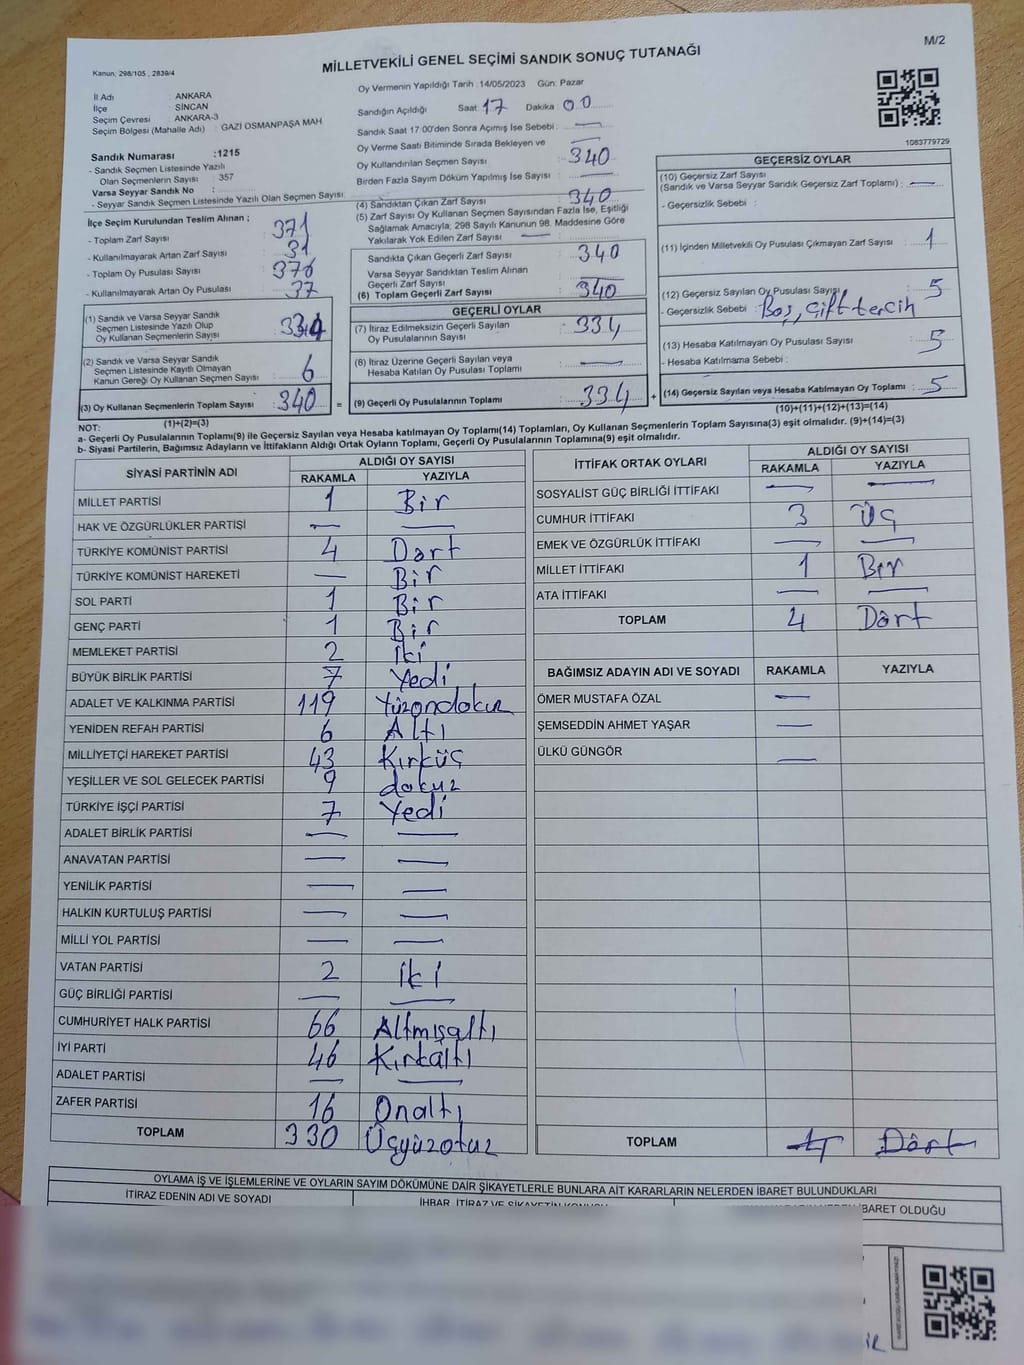 M/2
MİLLETVEKİLİ GENEL SEÇİMİ SANDIK SONUÇ TUTANAĞI
Kanun, 298/105 , 2839/4
İl Adı : ANKARA
İlçe : SİNCAN
Seçim Çevresi : ANKARA-3
Seçim Bölgesi (Mahalle Adı) : GAZİ OSMANPAŞA MAH
Sandık Numarası :1215
- Sandık Seçmen Listesinde Yazılı
Olan Seçmenlerin Sayısı : 357
Varsa Seyyar Sandık No :
- Seyyar Sandık Seçmen Listesinde Yazılı Olan Seçmen Sayısı:
İlçe Seçim Kurulundan Teslim Alınan ;
- Toplam Zarf Sayısı : 371
- Kullanılmayarak Artan Zarf Sayısı : 31
- Toplam Oy Pusulası Sayısı : 376
- Kullanılmayarak Artan Oy Pusulası : 37
(1) Sandık ve Varsa Seyyar Sandık
Seçmen Listesinde Yazılı Olup
Oy Kullanan Seçmenlerin Sayısı : 334
(2) Sandık ve Varsa Seyyar Sandık
Seçmen Listesinde Kayıtlı Olmayan
Kanun Gereği Oy Kullanan Seçmen Sayısı : 6
(3) Oy Kullanan Seçmenlerin Toplam Sayısı : 340
(1)+(2)=(3)
Oy Vermenin Yapıldığı Tarih : 14/05/2023 Gün: Pazar
Sandığın Açıldığı Saat : 17 Dakika : 00
Sandık Saat 17:00'den Sonra Açılmış İse Sebebi : —
Oy Verme Saati Bitiminde Sırada Bekleyen ve
Oy Kullandırılan Seçmen Sayısı : 340
Birden Fazla Sayım Döküm Yapılmış İse Sayısı : —
(4) Sandıktan Çıkan Zarf Sayısı : 340
(5) Zarf Sayısı Oy Kullanan Seçmen Sayısından Fazla İse, Eşitliği
Sağlamak Amacıyla, 298 Sayılı Kanunun 98. Maddesine Göre
Yakılarak Yok Edilen Zarf Sayısı : —
Sandıkta Çıkan Geçerli Zarf Sayısı : 340
Varsa Seyyar Sandıktan Teslim Alınan
Geçerli Zarf Sayısı : —
(6) Toplam Geçerli Zarf Sayısı : 340
GEÇERLİ OYLAR
(7) İtiraz Edilmeksizin Geçerli Sayılan
Oy Pusulalarının Sayısı : 334
(8) İtiraz Üzerine Geçerli Sayılan veya
Hesaba Katılan Oy Pusulası Toplamı : —
= (9) Geçerli Oy Pusulalarının Toplamı : 334 +
1083779729
GEÇERSİZ OYLAR
(10) Geçersiz Zarf Sayısı
(Sandık ve Varsa Seyyar Sandık Geçersiz Zarf Toplamı) : —
- Geçersizlik Sebebi :
(11) İçinden Milletvekili Oy Pusulası Çıkmayan Zarf Sayısı : 1
(12) Geçersiz Sayılan Oy Pusulası Sayısı : 5
- Geçersizlik Sebebi : Boş, Çift tercih
(13) Hesaba Katılmayan Oy Pusulası Sayısı : 5
- Hesaba Katılmama Sebebi :
(14) Geçersiz Sayılan veya Hesaba Katılmayan Oy Toplamı : 5
(10)+(11)+(12)+(13)=(14)
NOT:
a- Geçerli Oy Pusulalarının Toplamı(9) ile Geçersiz Sayılan veya Hesaba katılmayan Oy Toplamı(14) Toplamları, Oy Kullanan Seçmenlerin Toplam Sayısına(3) eşit olmalıdır. (9)+(14)=(3)
b- Siyasi Partilerin, Bağımsız Adayların ve İttifakların Aldığı Ortak Oyların Toplamı, Geçerli Oy Pusulalarının Toplamına(9) eşit olmalıdır.
SİYASİ PARTİNİN ADI ALDIĞI OY SAYISI
RAKAMLA YAZIYLA
MİLLET PARTİSİ 1 Bir
HAK VE ÖZGÜRLÜKLER PARTİSİ — —
TÜRKİYE KOMÜNİST PARTİSİ 4 Dört
TÜRKİYE KOMÜNİST HAREKETİ — Bir
SOL PARTİ 1 Bir
GENÇ PARTİ 1 Bir
MEMLEKET PARTİSİ 2 İki
BÜYÜK BİRLİK PARTİSİ 7 Yedi
ADALET VE KALKINMA PARTİSİ 119 Yüzondokuz
YENİDEN REFAH PARTİSİ 6 Altı
MİLLİYETÇİ HAREKET PARTİSİ 43 Kırküç
YEŞİLLER VE SOL GELECEK PARTİSİ 9 dokuz
TÜRKİYE İŞÇİ PARTİSİ 7 Yedi
ADALET BİRLİK PARTİSİ — —
ANAVATAN PARTİSİ — —
YENİLİK PARTİSİ — —
HALKIN KURTULUŞ PARTİSİ — —
MİLLİ YOL PARTİSİ — —
VATAN PARTİSİ 2 İki
GÜÇ BİRLİĞİ PARTİSİ — —
CUMHURİYET HALK PARTİSİ 66 Altmışaltı
İYİ PARTİ 46 Kırkaltı
ADALET PARTİSİ — —
ZAFER PARTİSİ 16 Onaltı
TOPLAM 330 Üçyüzotuz
İTTİFAK ORTAK OYLARI ALDIĞI OY SAYISI
RAKAMLA YAZIYLA
SOSYALİST GÜÇ BİRLİĞİ İTTİFAKI — —
CUMHUR İTTİFAKI 3 Üç
EMEK VE ÖZGÜRLÜK İTTİFAKI — —
MİLLET İTTİFAKI 1 Bir
ATA İTTİFAKI — —
TOPLAM 4 Dört
BAĞIMSIZ ADAYIN ADI VE SOYADI RAKAMLA YAZIYLA
ÖMER MUSTAFA ÖZAL —
ŞEMSEDDİN AHMET YAŞAR —
ÜLKÜ GÜNGÖR —
TOPLAM 4 Dört
OYLAMA İŞ VE İŞLEMLERİNE VE OYLARIN SAYIM DÖKÜMÜNE DAİR ŞİKAYETLERLE BUNLARA AİT KARARLARIN NELERDEN İBARET BULUNDUKLARI
İTİRAZ EDENİN ADI VE SOYADI İHBAR, İTİRAZ VE ŞİKAYETİN KONUSU İBARET OLDUĞU